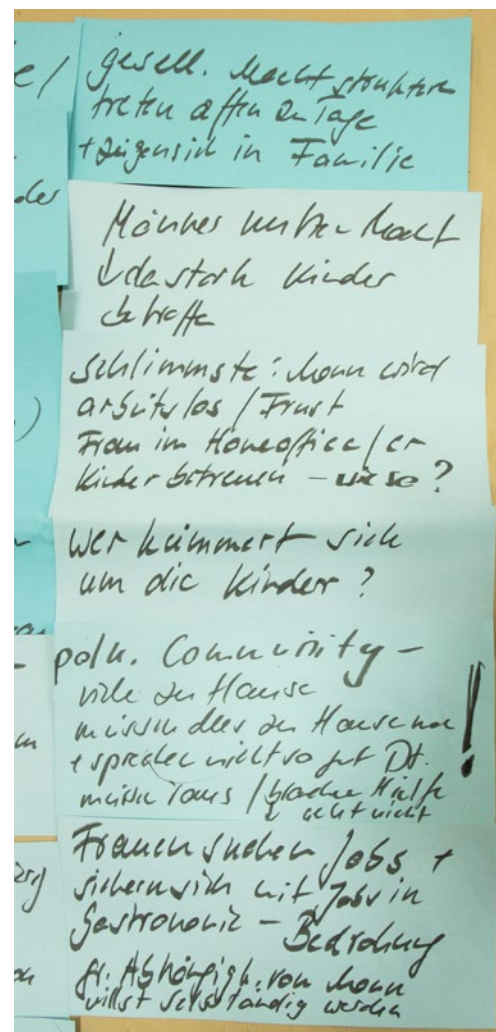 gesell. Machtstrukturen
treten offen zu Tage
+ zeigen sich in Familie
Männer Macht
da stark Kinder
betroffen
Schlimmste: Mann wird
arbeitslos / Frust
Frau im Homeoffice / er
Kinder betreuen – wieso?
Wer kümmert sich
um die Kinder?
poln. Community –
viele zu Hause
müssen alles zu Hause
+ sprechen nicht so gut Dt. !
müssen raus / Hilfe
geht nicht
Frauen suchen Jobs +
sichern sich mit Jobs in
Gastronomie – Bedrohung
gr. Abhängigk. von Mann
willst selbständig werden